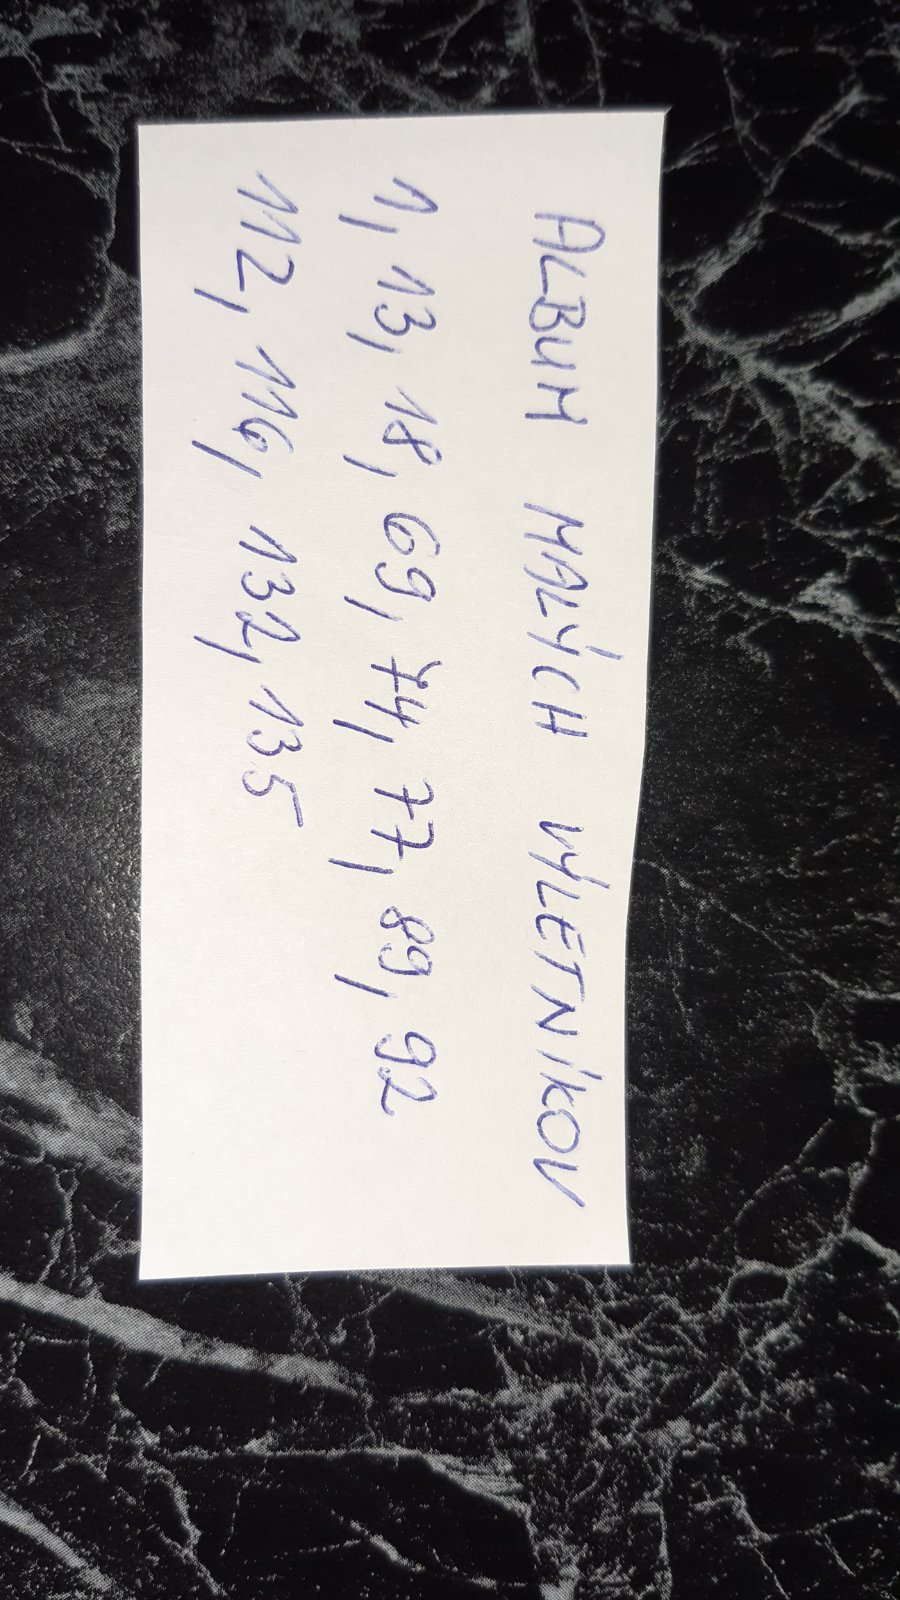 ALBUM MALÝCH VÝLETNÍKOV
1, 13, 18, 69, 74, 77, 89, 92
112, 116, 132, 135